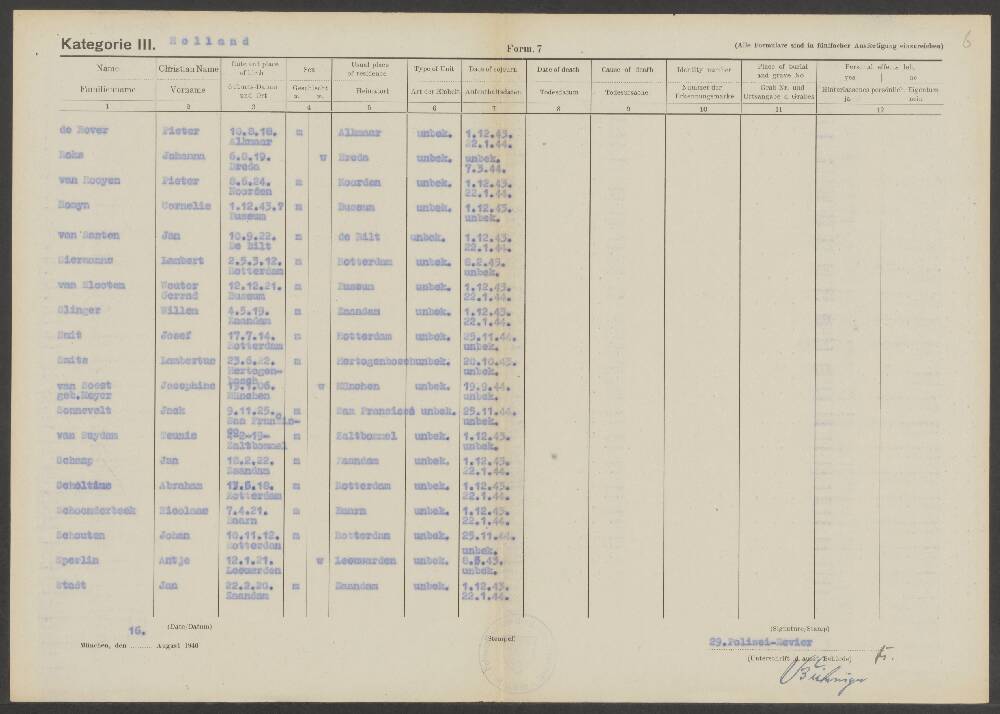 Kategorie III. Holland
Form. 7
(Alle Formulare sind in fünffacher Ausfertigung einzureichen)
6
Name Christian Name Date and place of birth Sex Usual place of residence Type of Unit Date of sojourn Date of death Cause of death Identity number Place of burial and grave No Personal effects left yes no
Familienname Vorname Geburts-Datum und Ort Geschlecht m. w. Heimatort Art der Einheit Aufenthaltsdaten Todesdatum Todesursache Nummer der Erkennungsmarke Grab Nr. und Ortsangabe d. Grabes Hinterlassenes persönlich. Eigentum ja nein
1 2 3 4 5 6 7 8 9 10 11 12
de Rover Pieter 10.8.18. m Alkmaar unbek. 1.12.43.
Alkmaar 22.1.44.
Roks Johanna 6.8.19. w Breda unbek. unbek.
Breda 7.3.44.
van Rooyen Pieter 8.6.24. m Noorden unbek. 1.12.43.
Noorden 22.1.44.
Rooyn Cornelis 1.12.43.? m Bussum unbek. 1.12.43.
Bussum unbek.
van Santen Jan 10.9.22. m de Bilt unbek. 1.12.43.
De Bilt 22.1.44.
Siermanns Lambert 2.5.3.12. m Rotterdam unbek. 8.2.43.
Rotterdam unbek.
van Slooten Wouter 12.12.21. m Bussum unbek. 1.12.43.
Gerrad Bussum 22.1.44.
Slinger Willem 4.5.19. m Zaandam unbek. 1.12.43.
Zaandam 22.1.44.
Smit Josef 17.7.14. m Rotterdam unbek. 25.11.44.
Rotterdam unbek.
Smits Lambertus 23.6.22. m Hertogenbosch unbek. 20.10.43.
Hertogen- unbek.
bosch
van Soest Josephine 19.1.06. w München unbek. 19.9.44.
geb. Meyer München unbek.
Sonnevelt Jack 9.11.25. m San Francisco unbek. 25.11.44.
San Francis- unbek.
co
van Suydam Teunis 2-2-19- m Zaltbommel unbek. 1.12.43.
Zaltbommel unbek.
Schaap Jan 18.2.22. m Zaandam unbek. 1.12.43.
Zaandam 22.1.44.
Scholtims Abraham 17.6.18. m Rotterdam unbek. 1.12.43.
Rotterdam 22.1.44.
Schoonderbeek Nicolaas 7.4.21. m Baarn unbek. 1.12.43.
Baarn 22.1.44.
Schouten Johan 10.11.12. m Rotterdam unbek. 25.11.44.
Rotterdam unbek.
Sperlin Antje 12.1.21. w Leeuwarden unbek. 8.5.43.
Leeuwarden unbek.
Stadt Jan 22.2.20. m Zaandam unbek. 1.12.43.
Zaandam 22.1.44.
(Date/Datum) (Stempel) (Signature/Stamp)
16.
München, den August 1946
29.Polizei-Revier
(Unterschrift d. ausst. Behörde)